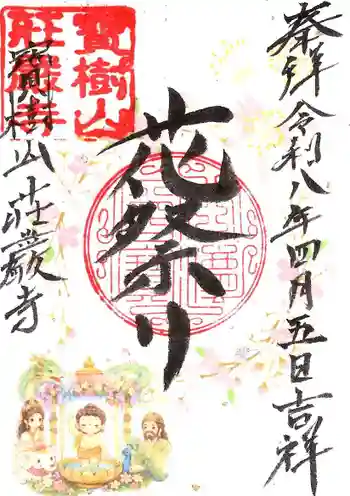 奉拝 令和八年四月五日吉祥
花祭り
寳樹山荘嚴寺
寳樹山
荘嚴寺